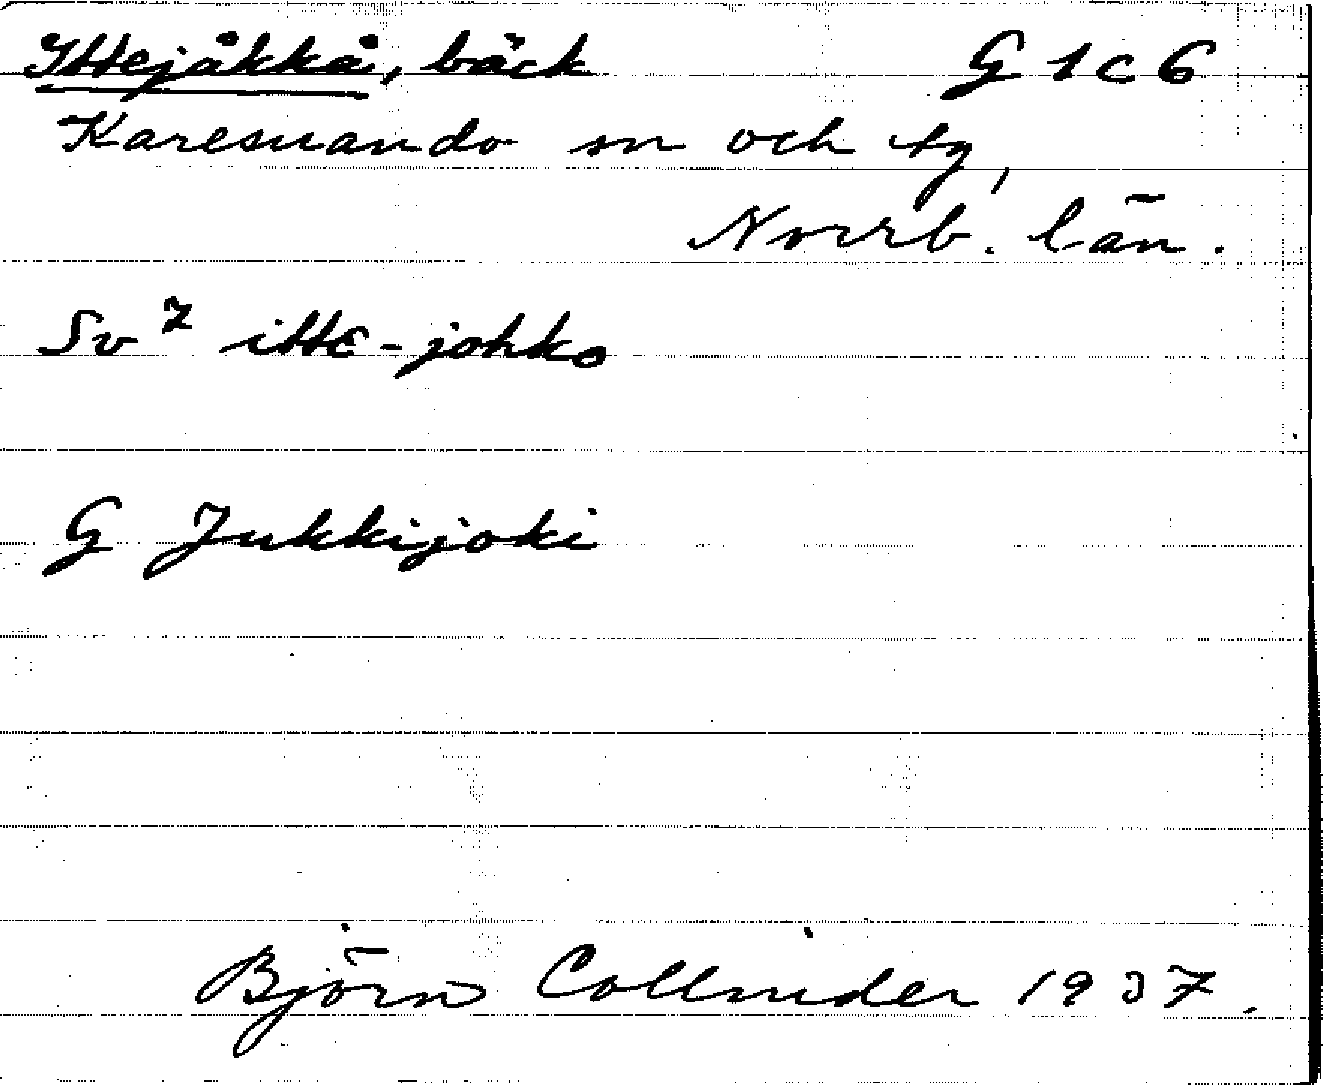 Ittejåkkå, bäck G 1 c 6
Karesuando sn och tg,
Norrb. län.
Sv 7 itte-johko
G Jukkijoki
Björn Collinder 1937.